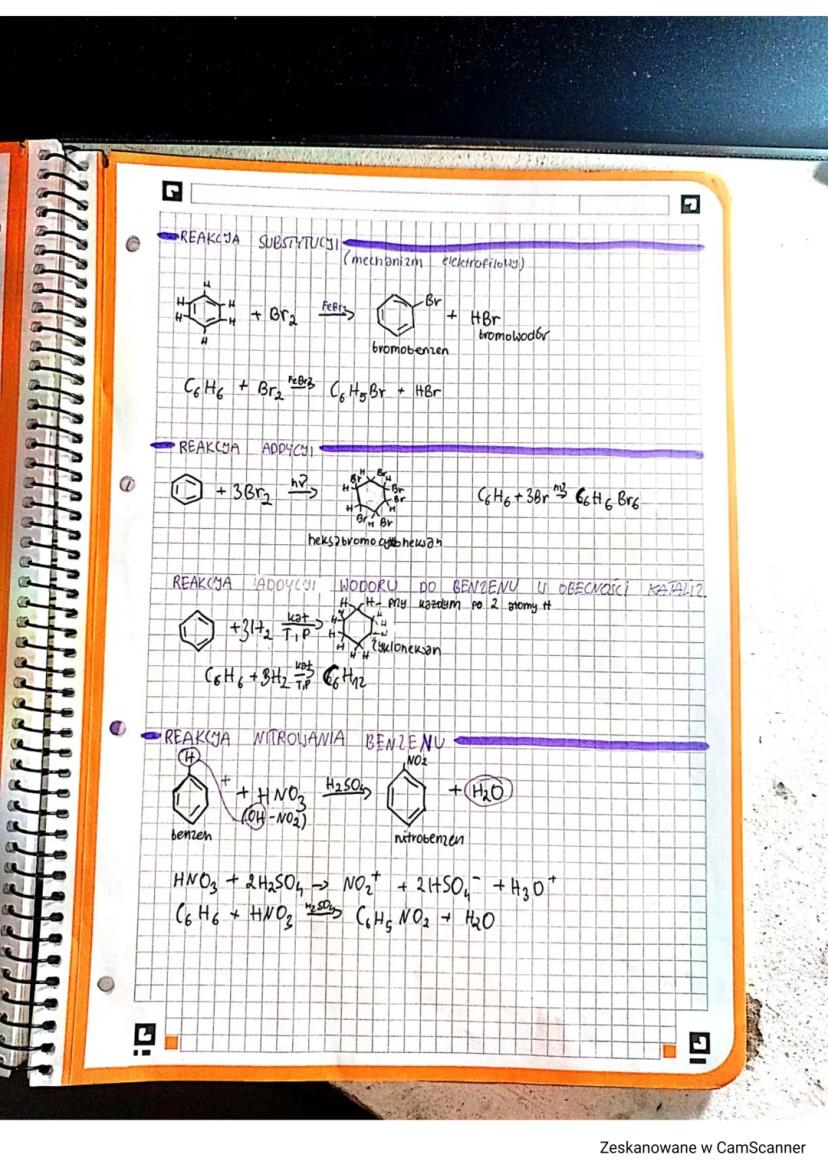 REAKCJA SUBSTYTUCJI
(mechanizm elektrofilowy)
H H H H H H + Br₂ FeBr₃→ Br + HBr
bromobenzen bromowodór
C₆H₆ + Br₂ FeBr₃→ C₆H₅Br + HBr
REAKCJA ADDYCJI
+ 3Br₂ hν→ H Br Br H H Br Br Br H H Br H Br C₆H₆ + 3Br hν→ C₆H₆Br₆
heksabromocykloheksan
REAKCJA ADDYCJI WODORU DO BENZENU W OBECNOŚCI KATALIZ.
H H - przy każdym po 2 atomy H
+3H₂ kat→ T,P H H H H H H H
cykloheksan
C₆H₆ + 3H₂ kat→ T,P C₆H₁₂
REAKCJA NITROWANIA BENZENU
H NO2
+ + HNO₃ H₂SO₄→ + H₂O
(OH-NO2)
benzen nitrobenzen
HNO₃ + 2H₂SO₄ → NO₂⁺ + 2HSO₄⁻ + H₃O⁺
C₆H₆ + HNO₃ H₂SO₄→ C₆H₅NO₂ + H₂O
Zeskanowane w CamScanner